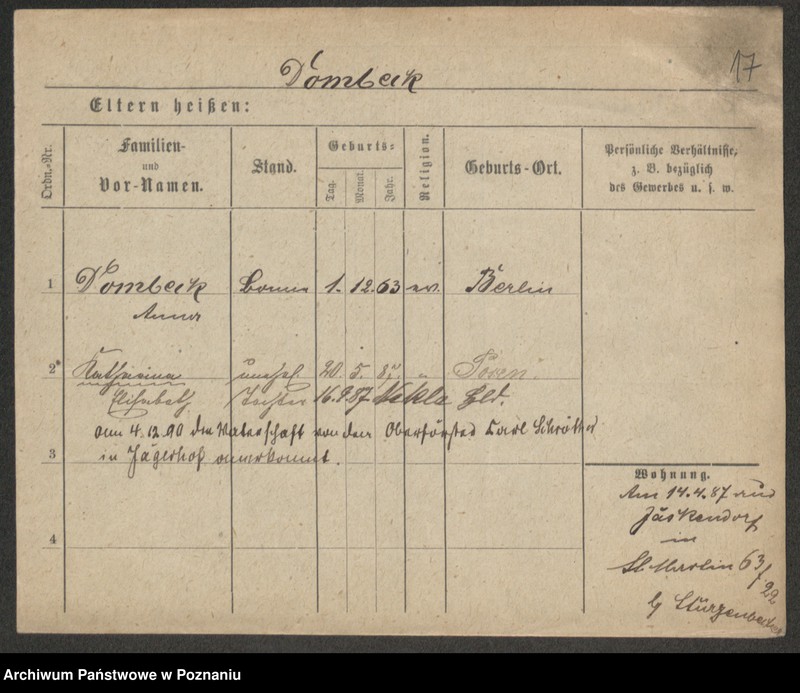 17
Dombeck
Eltern heißen:
Ordn.-Nr.
Familien-
und
Vor-Namen.
Stand.
Geburts-
Tag.
Monat.
Jahr.
Religion.
Geburts-Ort.
Persönliche Verhältnisse,
z. B. bezüglich
des Gewerbes u. s. w.
1 Dombeck Bonne 1. 12. 63 ev. Berlin
Anna
2 Katharina unehel. 20. 5. Posen
Elisabeth Tochter 16. 9. 87 Nekla
am 4.12.90 die Vaterschaft von dem Oberförster Carl Schröther
3 in Jägerhof anerkannt.
4
Wohnung.
Am 14.4.87 aus
Jäskendorf
in
St. Martin 63/22
b/ Stürzenbecher
Archiwum Państwowe w Poznaniu